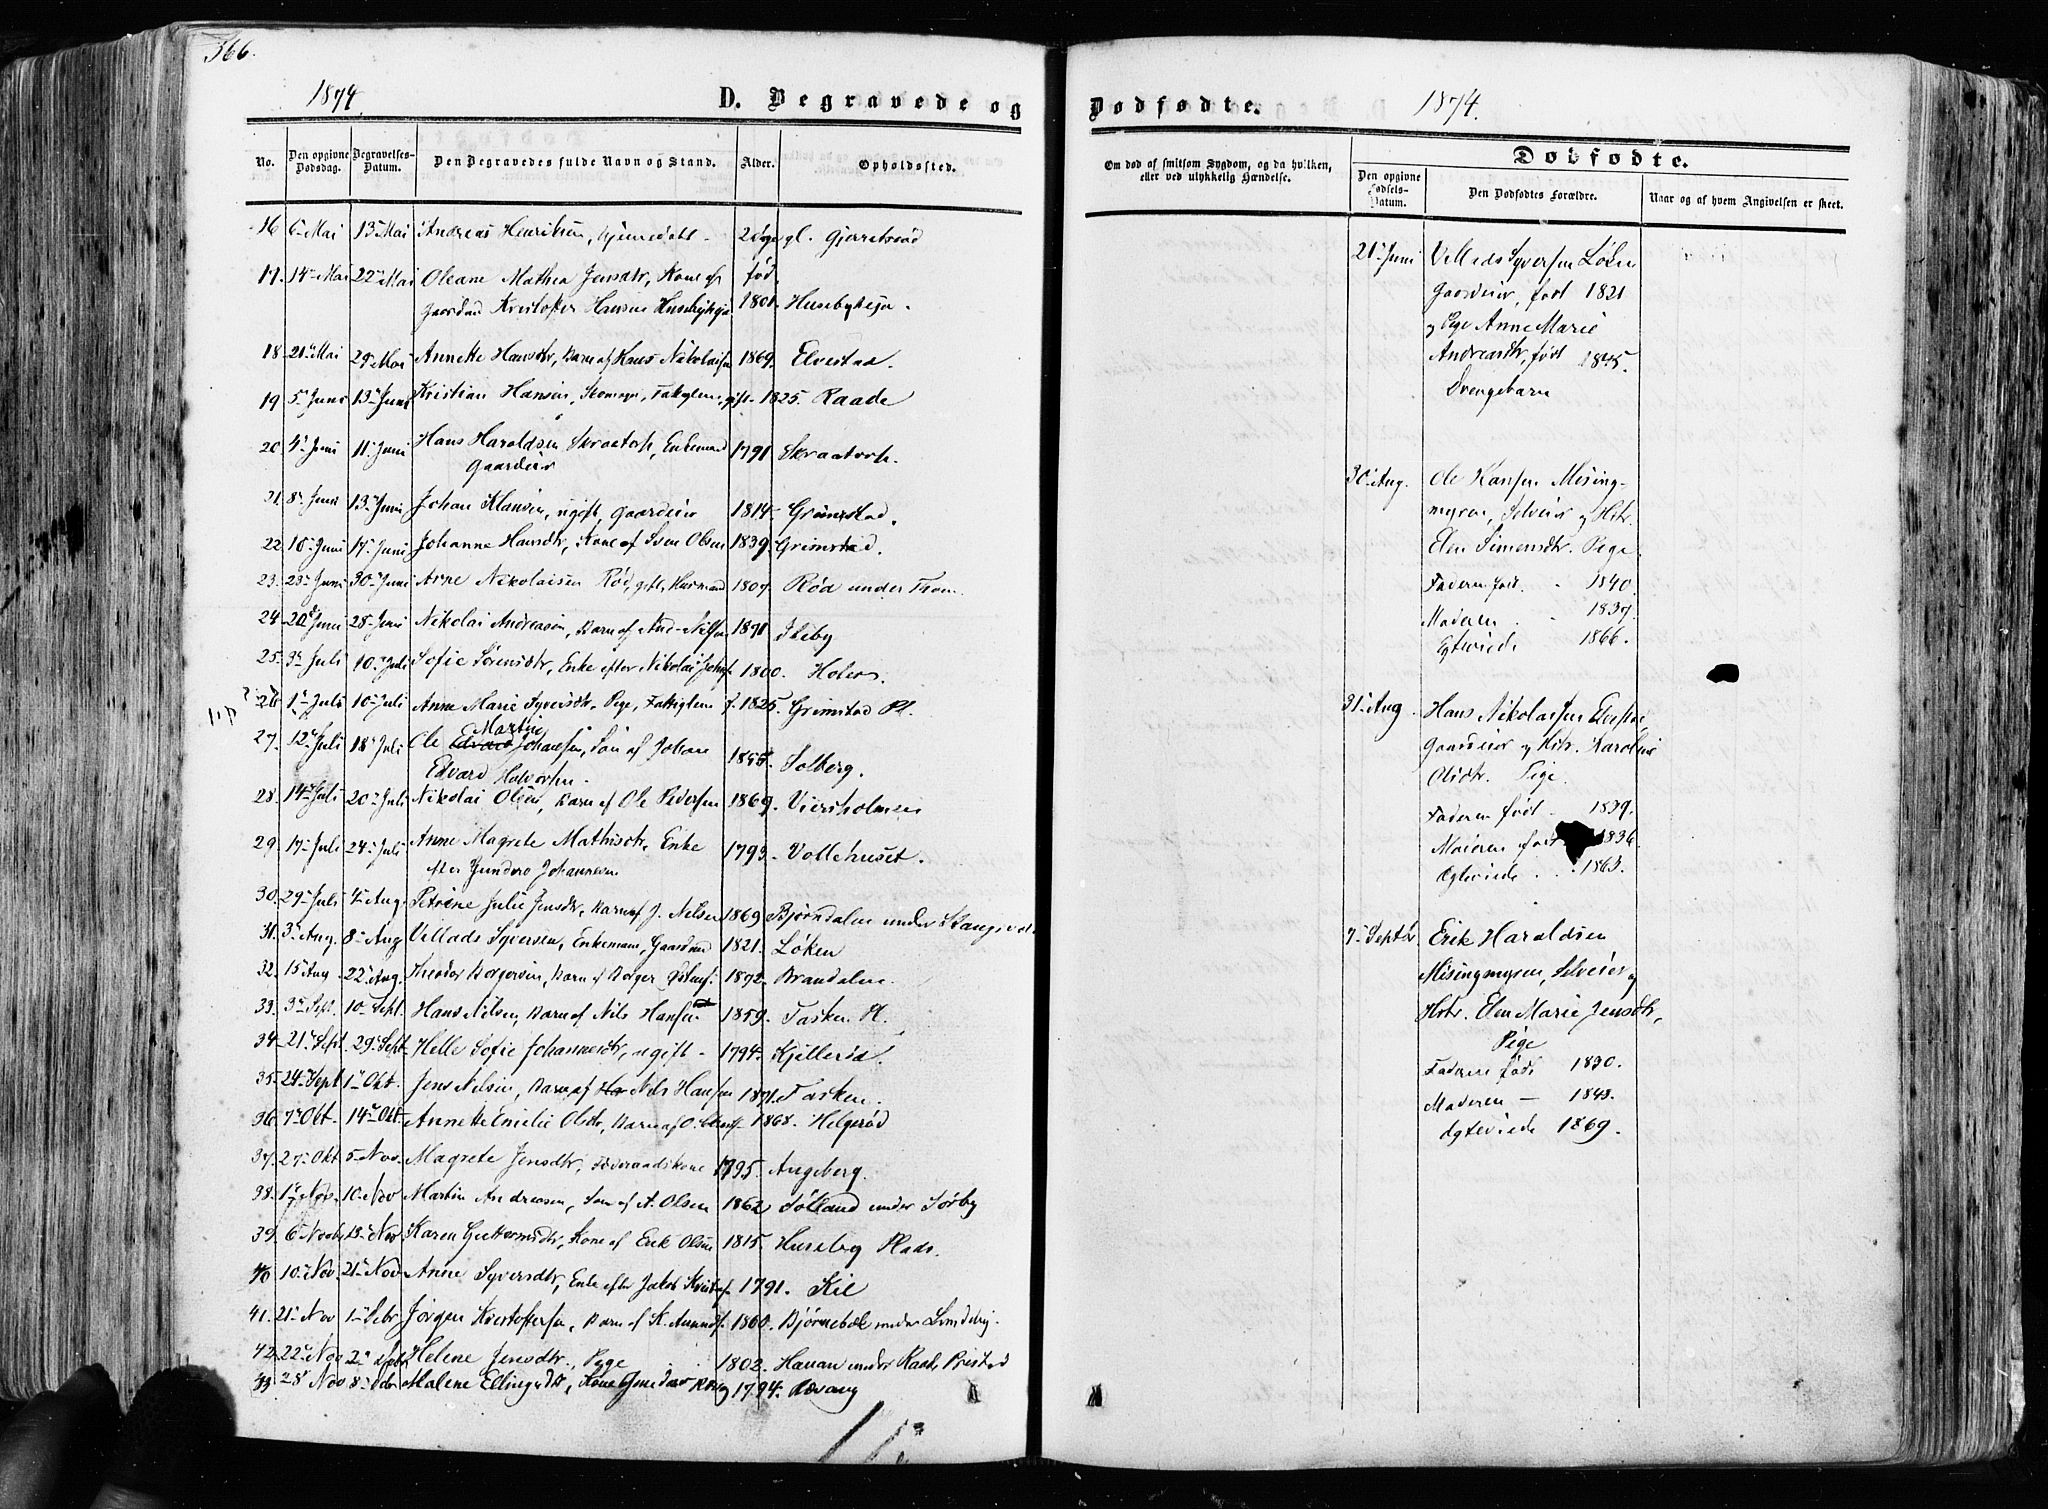 366.
1874.
D. Begravede og
No.
Den opgivne Dødsdag.
Begravelses-Datum.
Den Begravedes fulde Navn og Stand.
Alder.
Opholdssted.
16 6 Mai 13 Mai Andreas Henriksen, 2 Uger gl. Gjerretsrød
17. 14 Mai 22 Mai Oleane Mathea Jensdtr, Kone af fød
Kristoffer Hansen 1801. Husebyheja.
18. 21 Mai 29 Mai Annette Hansdtr, Barn af Hans Nikolaisen 1869. Elvestad.
19 5 Juni 13 Juni Kristian Hansen, Skomager, Fattiglem, gift 1825. Raade
20 4 Juni 11 Juni Hans Haraldsen Skraatorp, Enkemand 1791 Skraatorp.
Gaardeier
21. 8 Juni 13 Juni Johan Hansen, ugift, Gaardeier 1814. Grimstad.
22. 10 Juni 17 Juni Johanne Hansdtr, Kone af Sven Olsen 1839. Grimstad.
23. 23 Juni 30 Juni Arne Nikolaisen Rød, gift, Husmand 1807. Rød under Tom.
24 20 Juni 28 Juni Nikolai Andreasen, Barn af And. Nilsen 1871 Ileby
25. 3 Juli 10 Juli Sofie Sørensdtr, Enke efter Nikolai 1800. Holers.
26 1 Juli 10 Juli Anne Marie Syversdtr, Pige, Fattiglem f. 1825. Grimstad Pl.
Martin
27. 12 Juli 18 Juli Ole Edvard Johansen, Søn af Johan Solberg.
Edvard Halvorsen.
28. 14 Juli 20 Juli Nikolai Olsen, Barn af Ole Pedersen 1869. Viersholmen
29. 17 Juli 24 Juli Anne Magrete Mathisdtr, Enke 1793. Vollehuset.
efter Gundero Johannesen
30. 29 Juli 4 Aug. Petrine Julie Jensdtr, Barn af J. Nilsen 1869 Bjørndalen under Stangerød.
31. 3 Aug. 8 Aug Vellads Syversen, Enkemann, Gaardmd 1821. Løken
32. 15 Aug. 22 Aug. Theodor Borgersen, Barn af Borger 1872. Brandalen.
33. 3 Sept. 10 Sept. Hans Nilsen, Barn af Nils Hansen 1859. Tasken Pl.
34. 21 Sept 29 Sept Helle Sofie Johannesdtr, ugift - 1794. Kjillerød.
35. 24 Sept 1 Okt. Jens Nilsen, Barn af Ha Nils Hansen 1871. Tasken.
36. 7 Okt 14 Okt. Annette Emilie Olsdtr, Barn af O. 1868. Helgerød
37. 27 Okt 5 Nov. Magrete Jensdtr, Føderaadskone 1795. Augeberg.
38. 1 Nov. 10 Nov Martin Andreasen, Søn af A. Olsen 1862 Tølland under Sørby
39. 6 Novb 13 Nov Karen Guttormsdtr, Kone af Erik Olsen 1815. Huseby Plads.
40 10 Nov. 21 Nov Anne Syversdtr, Enke efter Jakob 1791. Kil
41. 21 Nov 1 Debr. Jørgen Kristoffersen, Barn af K. Amundsen 1860. Bjørnebæk under Lundeby.
42. 22 Nov 2 Debr Helene Jensdtr., Pige 1802. Hanan under Raade Præstegd
43. 28 Nov 8 Debr Malene Ellingsdtr, Kone 1794. Rævang
Dødfødte.
1874.
Om død af smitsom Sygdom, og da hvilken, eller ved ulykkelig Hændelse.
Dødfødte.
Den opgivne Fødsels-Datum.
Den Dødfødtes Forældre.
Naar og af hvem Angivelsen er skeet.
21 Juni Vellads Syversen Løken
Gaardeier, født 1821
og Pige Anne Marie
Andreasdtr, født 1845.
Drengebarn
30 Aug. Ole Hansen Mising-
myren, Selveier og Hstr.
Elen Simensdtr. Pige.
Faderen født - 1840.
Moderen - 1837.
Egteviede 1866.
31 Aug Hans Nikolaisen Elvestad
Gaardeier og Hstr. Karoline
Olsdtr. Pige.
Faderen født - 1839.
Moderen født 1836
Egteviede - 1863.
7 Septbr. Erik Haraldsen
Misingmyren, Selveier og
Hstr. Elen Marie Jensdtr,
Pige
Faderen født 1830.
Moderen - 1843.
Egteviede 1869.